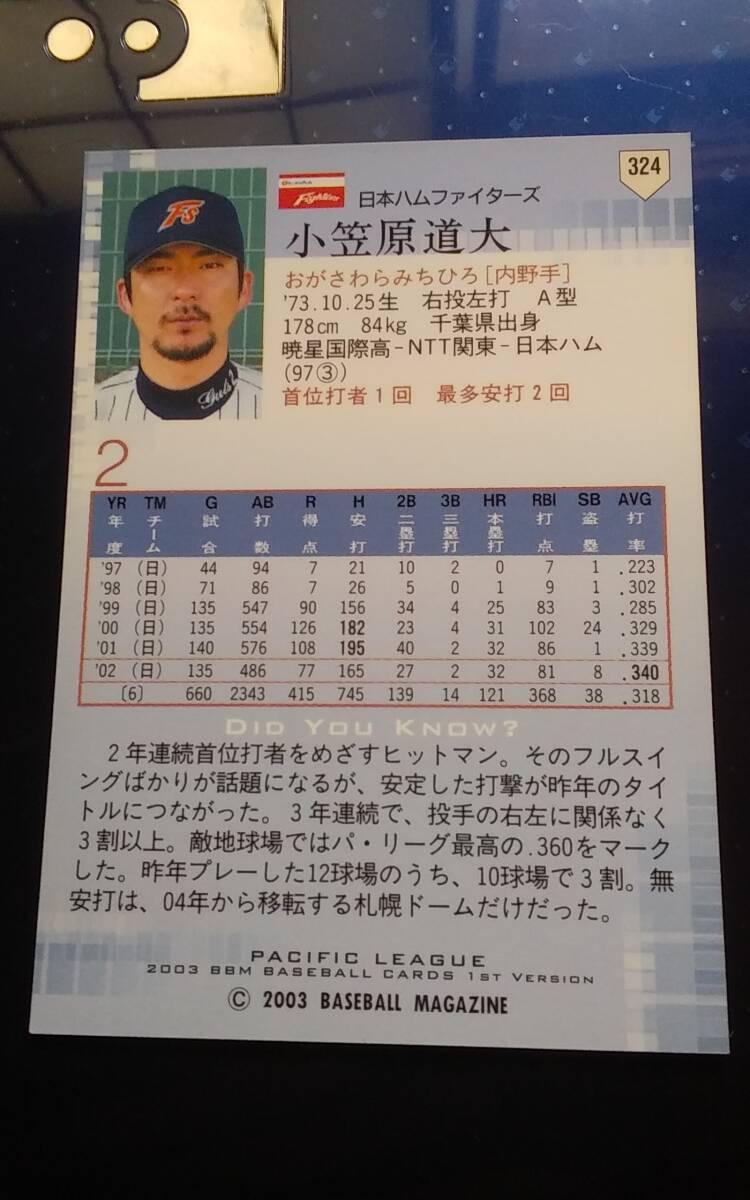 324
Fighters
日本ハムファイターズ
小笠原道大
おがさわらみちひろ[内野手]
'73.10.25生 右投左打 A型
178cm 84kg 千葉県出身
暁星国際高-NTT関東-日本ハム
(97③)
首位打者1回 最多安打2回
Fs
Guts
2
YR TM G AB R H 2B 3B HR RBI SB AVG
年度 チーム 試合 打数 得点 安打 二塁打 三塁打 本塁打 打点 盗塁 打率
'97 (日) 44 94 7 21 10 2 0 7 1 .223
'98 (日) 71 86 7 26 5 0 1 9 1 .302
'99 (日) 135 547 90 156 34 4 25 83 3 .285
'00 (日) 135 554 126 182 23 4 31 102 24 .329
'01 (日) 140 576 108 195 40 2 32 86 1 .339
'02 (日) 135 486 77 165 27 2 32 81 8 .340
〔6〕 660 2343 415 745 139 14 121 368 38 .318
DID YOU KNOW?
2年連続首位打者をめざすヒットマン。そのフルスイ
ングばかりが話題になるが、安定した打撃が昨年のタイ
トルにつながった。3年連続で、投手の右左に関係なく
3割以上。敵地球場ではパ・リーグ最高の.360をマーク
した。昨年プレーした12球場のうち、10球場で3割。無
安打は、04年から移転する札幌ドームだけだった。
PACIFIC LEAGUE
2003 BBM BASEBALL CARDS 1ST VERSION
© 2003 BASEBALL MAGAZINE